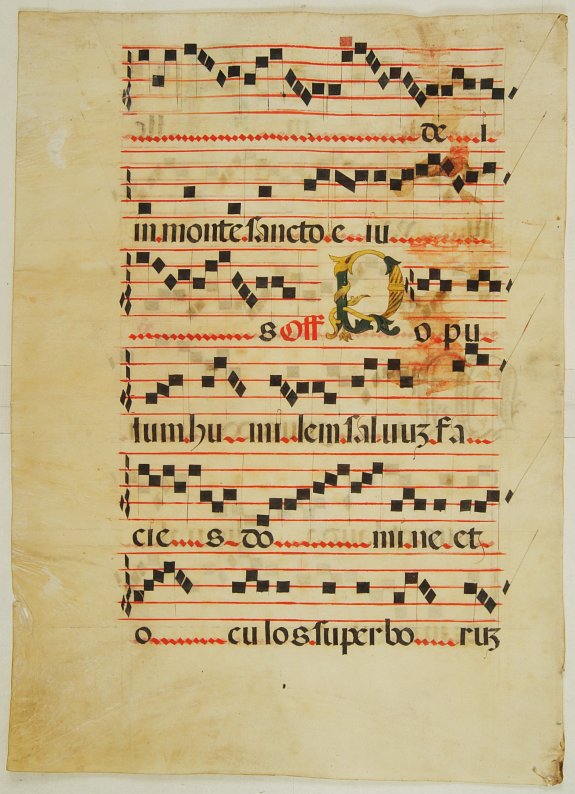 de i
in monte sancto e iu
s Off P opu
lum hu mi lem saluuʒ fa
cie s do mi ne et
o cu los super bo ruʒ